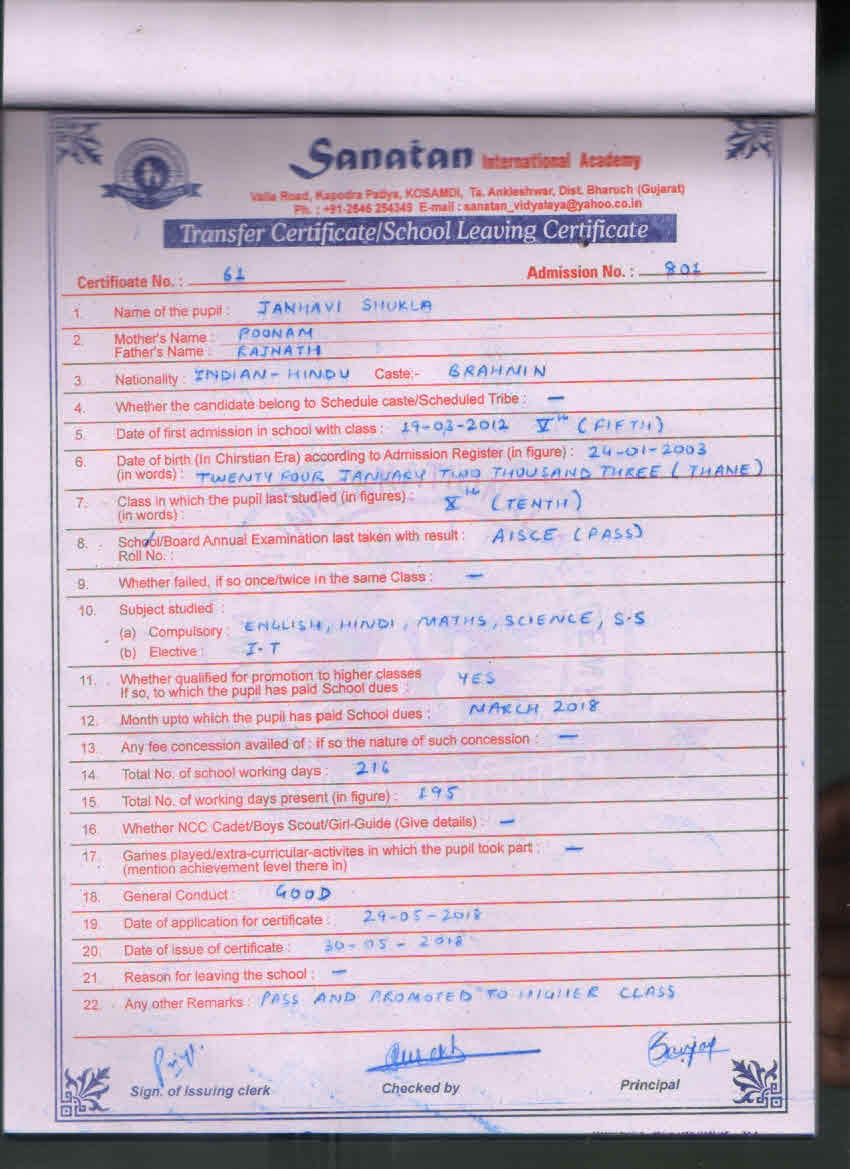 Sanatan International Academy
Valia Road, Kapodra Patiya, KOSAMDI, Ta. Ankleshwar, Dist. Bharuch (Gujarat)
Ph. : +91-2646 254349 E-mail : sanatan_vidyalaya@yahoo.co.in
Transfer Certificate/School Leaving Certificate
Certificate No. : 61 Admission No. : 801
1. Name of the pupil : JANHAVI SHUKLA
2. Mother's Name : POONAM
Father's Name : RAJNATH
3. Nationality : INDIAN - HINDU Caste:- BRAHMIN
4. Whether the candidate belong to Schedule caste/Scheduled Tribe : —
5. Date of first admission in school with class : 19-03-2012 Vth (FIFTH)
6. Date of birth (In Chirstian Era) according to Admission Register (in figure) : 24-01-2003
(in words) : TWENTY FOUR JANUARY TWO THOUSAND THREE (THANE)
7. Class in which the pupil last studied (in figures) : Xth (TENTH)
(in words) :
8. School/Board Annual Examination last taken with result : AISCE (PASS)
Roll No. :
9. Whether failed, if so once/twice in the same Class : —
10. Subject studied :
(a) Compulsory : ENGLISH, HINDI, MATHS, SCIENCE, S.S
(b) Elective : I.T
11. Whether qualified for promotion to higher classes YES
If so, to which the pupil has paid School dues :
12. Month upto which the pupil has paid School dues : MARCH 2018
13. Any fee concession availed of : if so the nature of such concession : —
14. Total No. of school working days : 216
15. Total No. of working days present (in figure) : 195
16. Whether NCC Cadet/Boys Scout/Girl-Guide (Give details) : —
17. Games played/extra-curricular-activites in which the pupil took part : —
(mention achievement level there in)
18. General Conduct : GOOD
19. Date of application for certificate : 29-05-2018
20. Date of issue of certificate : 30-05-2018
21. Reason for leaving the school : —
22. Any other Remarks : PASS AND PROMOTED TO HIGHER CLASS
Sign. of issuing clerk Checked by Principal